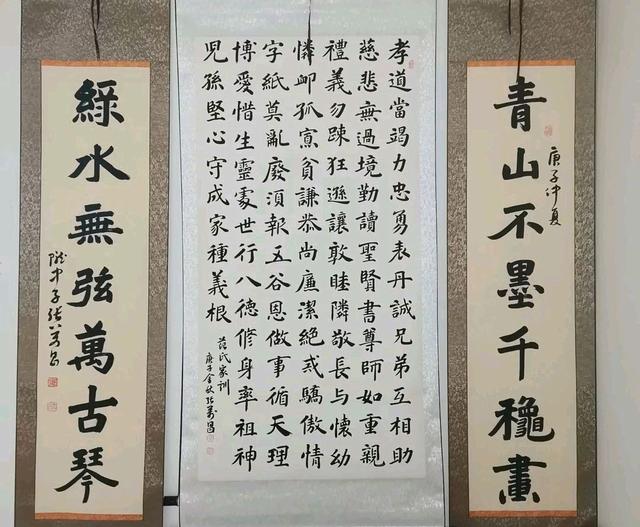 青山不墨千龝畫
庚子仲夏
孝道當竭力忠勇表丹誠兄弟互相助
慈悲無過境勤讀聖賢書尊師如重親
禮義勿踈狂遜讓敦睦隣敬長与懷幼
憐卹孤寡貧謙恭尚廉潔絕戒驕傲情
字紙莫亂廢須報五谷恩做事循天理
博愛惜生靈處世行八德修身率祖神
児孫堅心守成家種義根
范氏家训
庚子金秋张萬昌
綠水無弦萬古琴
陇中子张萬昌